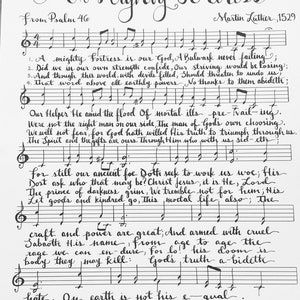 A Mighty Fortress
From Psalm 46
Martin Luther, 1529
1. A mighty Fortress is our God, A Bulwark never failing;
2. Did we in our own strength confide, Our striving would be losing;
3. And though this world with devils filled, Should threaten to undo us;
4. That word above all earthly powers, No thanks to them abideth;
Our Helper He amid the flood Of mortal ills pre-vail-ing.
Were not the right man on our side the man of God's own choosing.
We will not fear, for God hath willed His truth to triumph through us.
The Spirit and the gifts are ours through Him who with us sid-eth.
For still our ancient foe Doth seek to work us woe; His
Dost ask who that may be? Christ Jesus, it is He; Lord
The prince of darkness grim, We tremble not for him; His
Let goods and kindred go, This mortal life also; The
craft and power are great; And armed with cruel
Sabaoth His name; From age to age the
rage we can en-dure, for lo! his doom is
body they may kill: God's truth a-bideth
hate, On earth is not his e-qual.